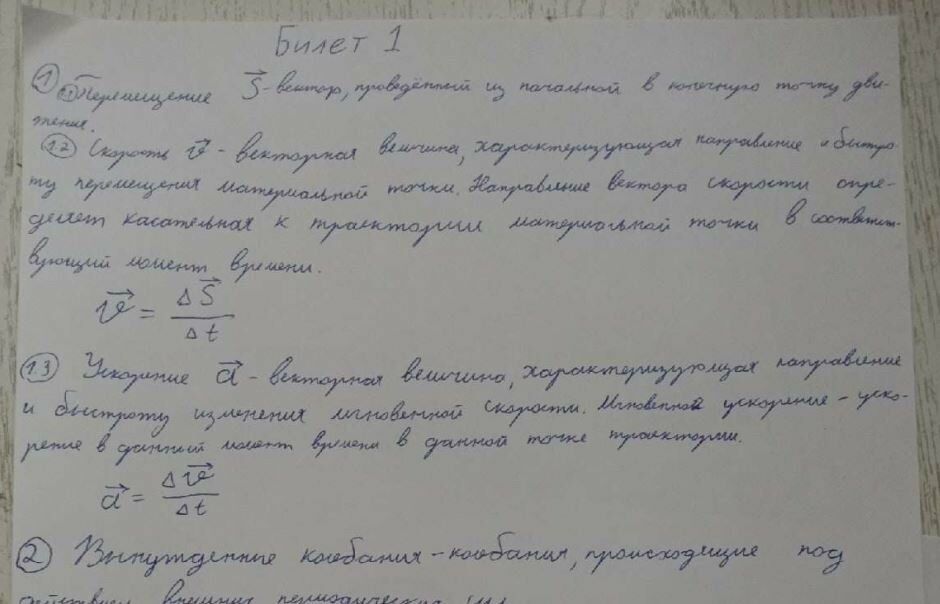 Билет 1
① 1.1 Перемещение S⃗ - вектор, проведённый из начальной в конечную точку дви-
жения.
1.2 Скорость v⃗ - векторная величина, характеризующая направление и быстро-
ту перемещения материальной точки. Направление вектора скорости опре-
деляет касательная к траектории материальной точки в соответст-
вующий момент времени.
v⃗ = ΔS⃗ / Δt
1.3 Ускорение a⃗ - векторная величина, характеризующая направление
и быстроту изменения мгновенной скорости. Мгновенное ускорение - уско-
рение в данный момент времени в данной точке траектории.
a⃗ = Δv⃗ / Δt
② Вынужденные колебания - колебания, происходящие под
действием внешних периодических сил